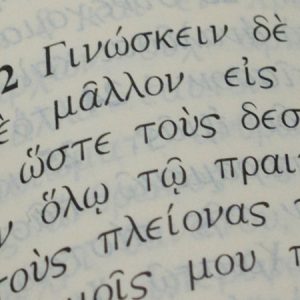 12 Γινώσκειν δὲ
μᾶλλον εἰς
ὥστε τοὺς δεσ
ν ὅλῳ τῷ πραι
τοὺς πλείονας τ
μοῖς μου π